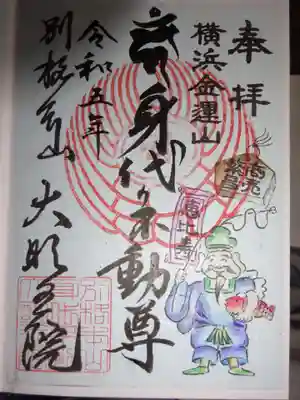 奉拝
横浜金運山
身代り不動尊
恵比寿
令和五年
別格本山 大明王院